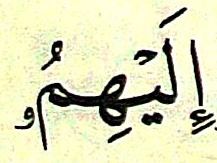 إِلَيْهِمُۥ